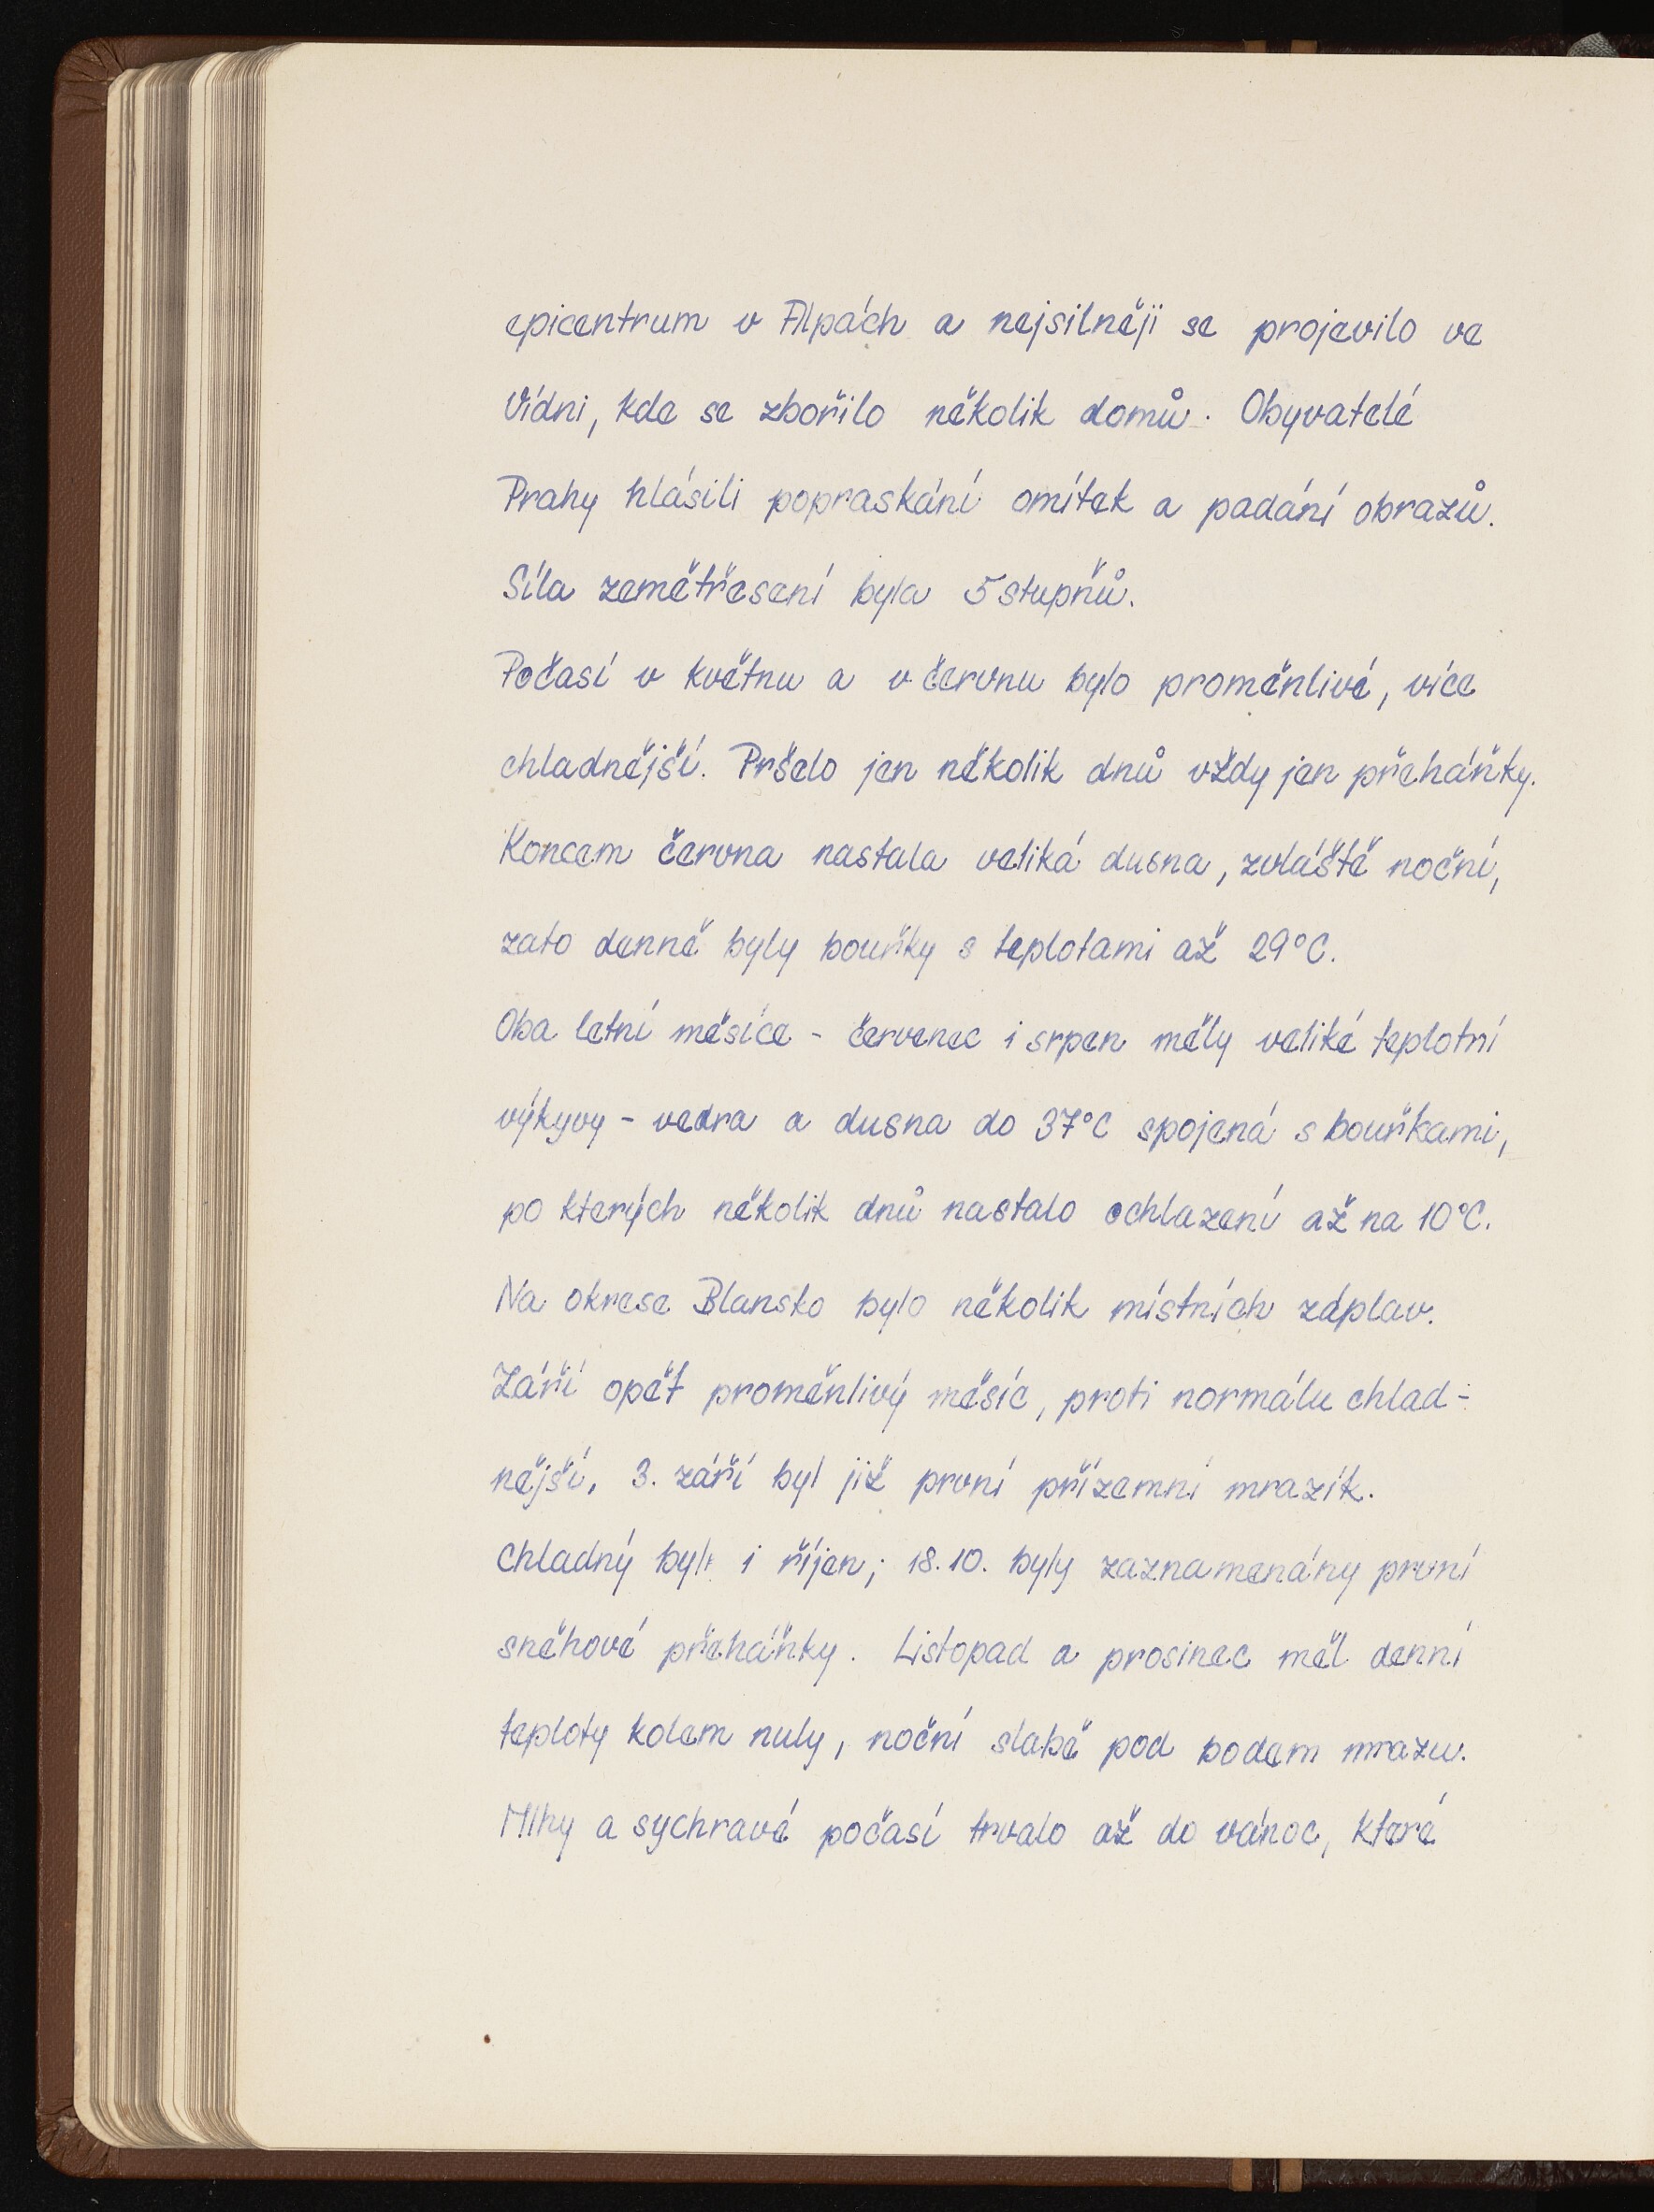 epicentrum v Alpách a nejsilněji se projevilo ve
Vídni, kde se zbořilo několik domů. Obyvatelé
Prahy hlásili popraskání omítek a padání obrazů.
Síla zemětřesení byla 5 stupňů.
Počasí v květnu a v červnu bylo proměnlivé, více
chladnější. Pršelo jen několik dnů vždy jen přeháňky.
Koncem června nastala veliká dusna, zvláště noční,
zato denně byly bouřky s teplotami až 29°C.
Oba letní měsíce - červenec i srpen měly veliké teplotní
výkyvy - vedra a dusna do 37°C spojená s bouřkami,
po kterých několik dnů nastalo ochlazení až na 10°C.
Na okrese Blansko bylo několik místních záplav.
Září opět proměnlivý měsíc, proti normálu chlad-
nější, 3. září byl již první přízemní mrazík.
Chladný byl i říjen; 18.10. byly zaznamenány první
sněhové přeháňky. Listopad a prosinec měl denní
teploty kolem nuly, noční slabě pod bodem mrazu.
Mlhy a sychravé počasí trvalo až do vánoc, které